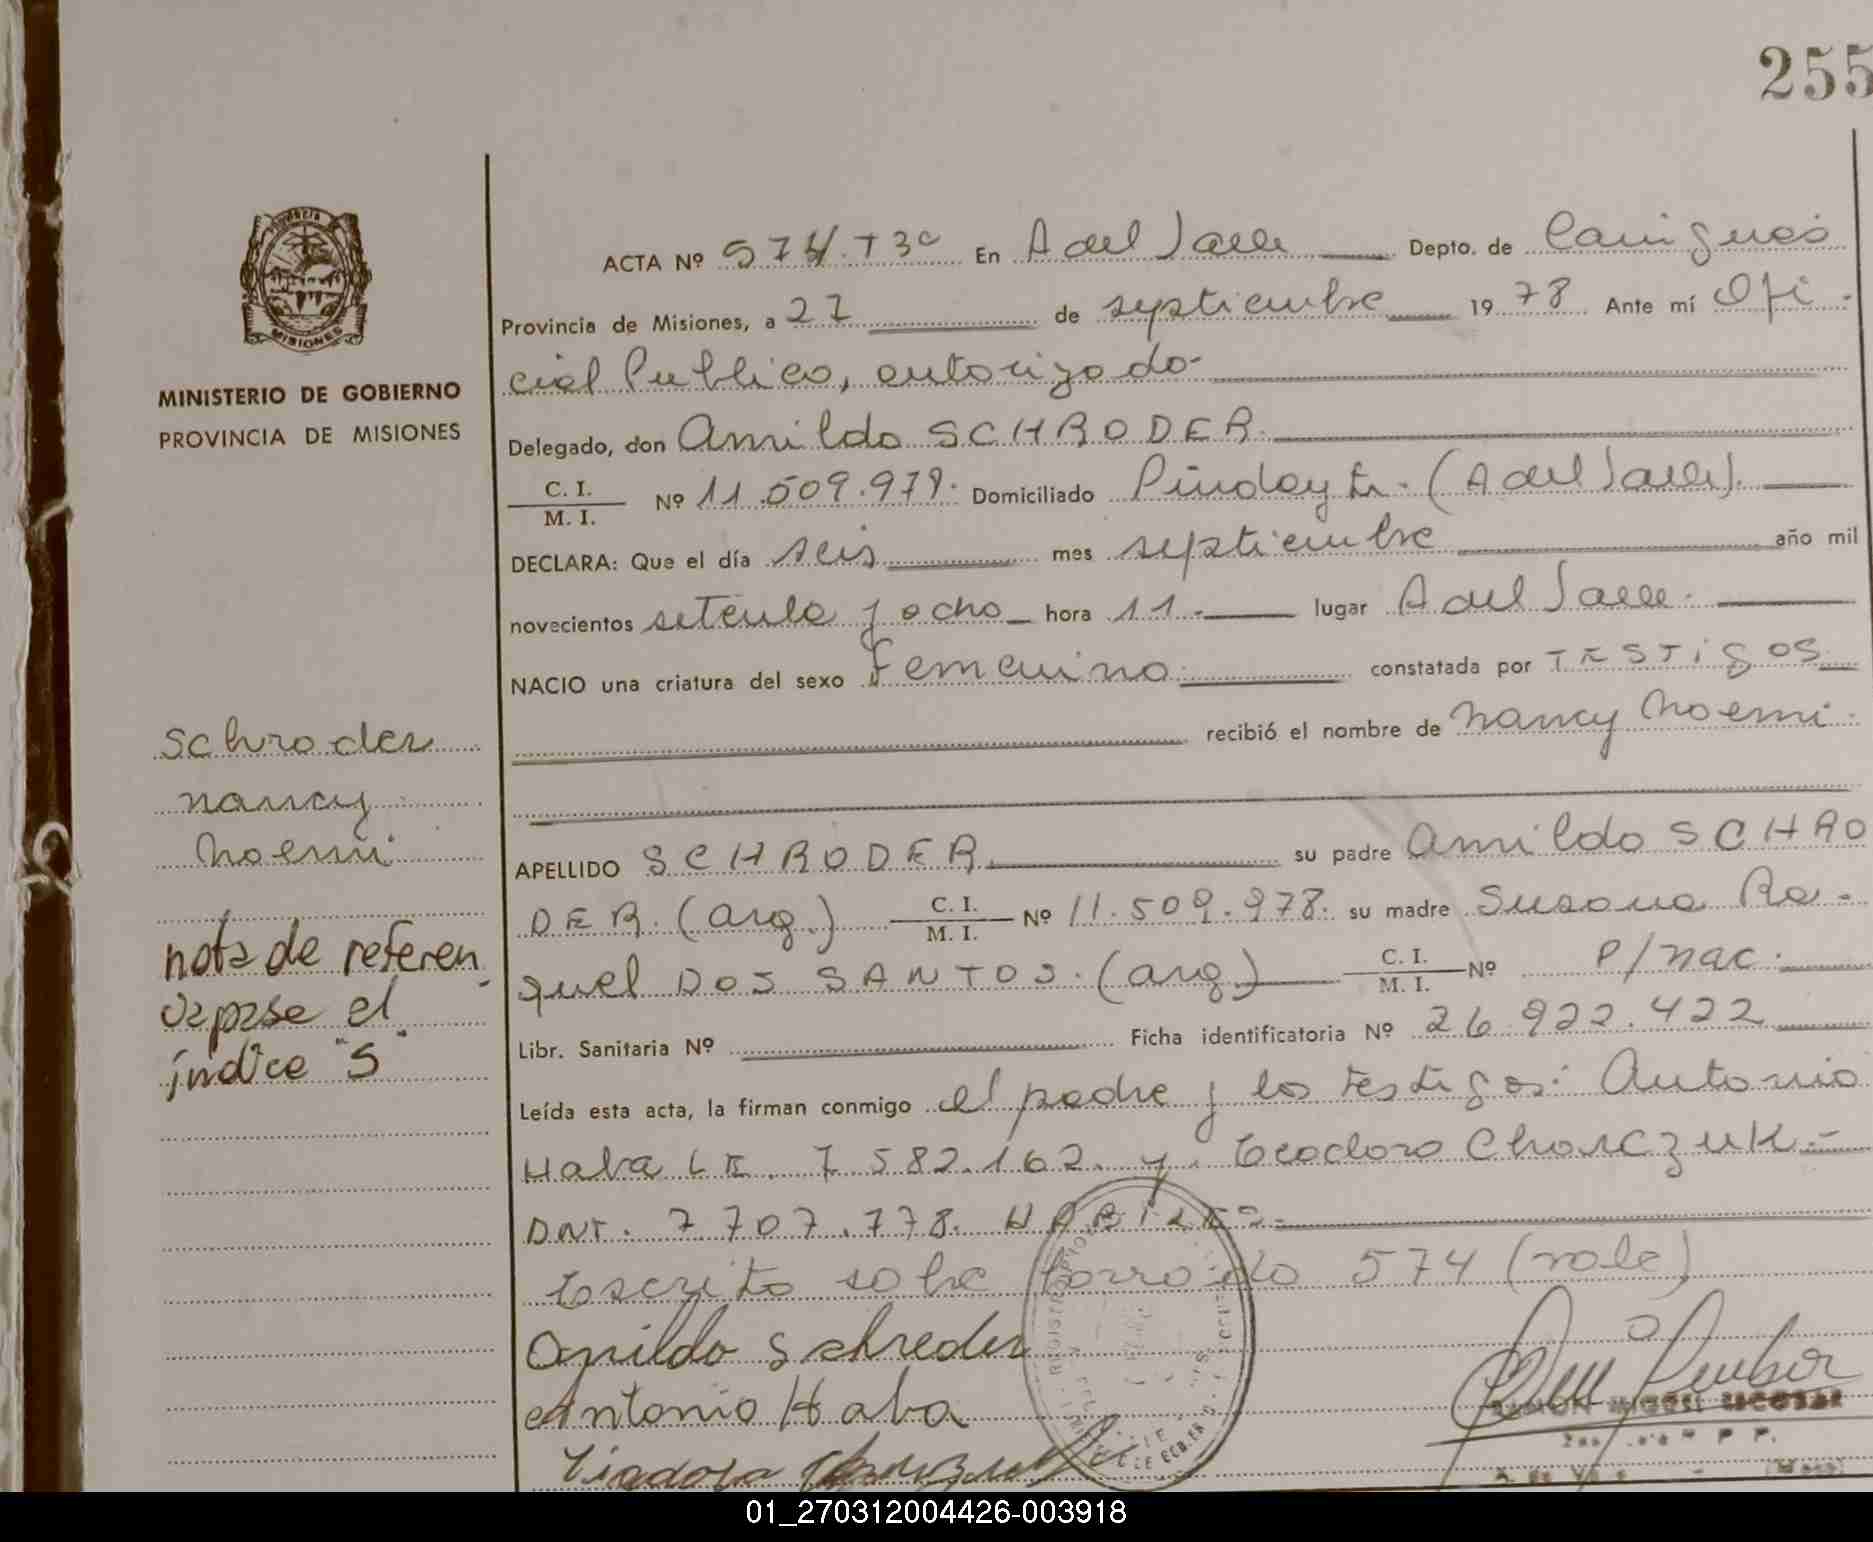 255
ACTA Nº 574. T3º En A del Valle Depto. de Cainguás
Provincia de Misiones, a 27 de septiembre 1978 Ante mí Ofi-
cial Publico, autorizado-
Delegado, don Amildo SCHRODER.
C. I. / M. I. Nº 11.509.978. Domiciliado Pindayti. (A del Valle).
DECLARA: Que el día seis mes septiembre año mil
novecientos setenta y ocho hora 11.- lugar A del Valle.
NACIO una criatura del sexo Femenino constatada por TESTIGOS
recibió el nombre de Nancy Noemi.
APELLIDO SCHRODER su padre Amildo SCHRO
DER. (arg.) C. I. / M. I. Nº 11.509.978. su madre Susana Ra-
quel DOS SANTOS. (arg.) C. I. / M. I. Nº P/nac.
Libr. Sanitaria Nº Ficha identificatoria Nº 26.922.422
Leída esta acta, la firman conmigo el padre y los testigos: Antonio
Haba LE. 7.582.162. y. Teodoro Chorczuk.-
DNI. 7.707.778. HABILES.
Escrito sobre borrado 574 (vale)
Amildo Schreder
Antonio Haba
RAMON MIGUEL ESCOBAR
PROVINCIA
MISIONES
MINISTERIO DE GOBIERNO
PROVINCIA DE MISIONES
Schroder
Nancy
Noemi
nota de referen
vepase el
índice "S"
01_270312004426-003918